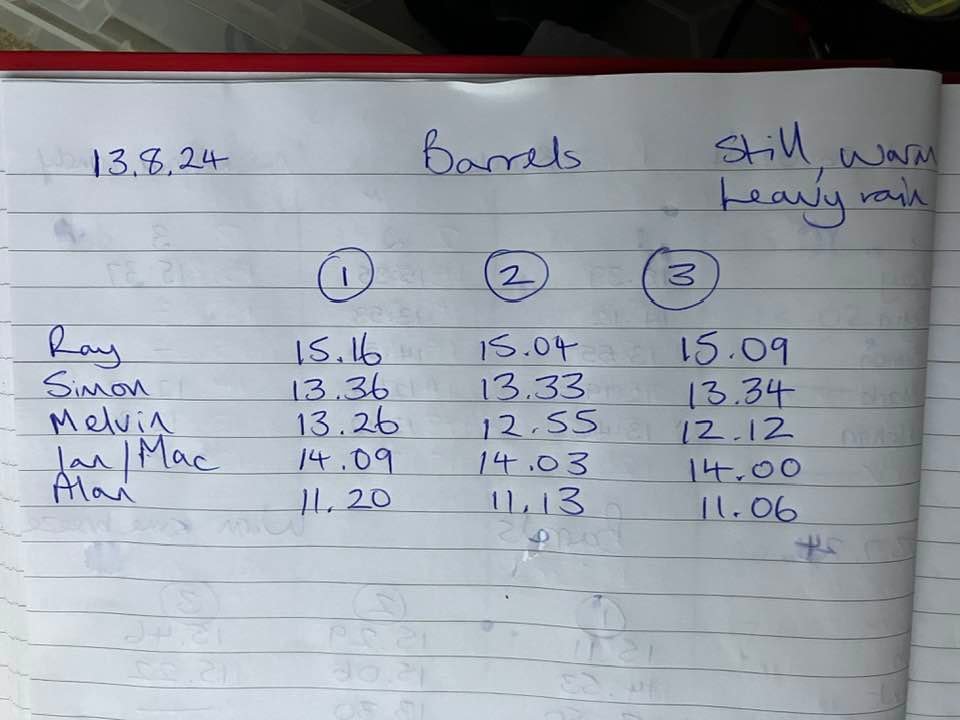 13.8.24 Barrels Still, warm
heavy rain
1 2 3
Ray 15.16 15.04 15.09
Simon 13.36 13.33 13.34
Melvin 13.26 12.55 12.12
Ian/Mac 14.09 14.03 14.00
Alan 11.20 11.13 11.06